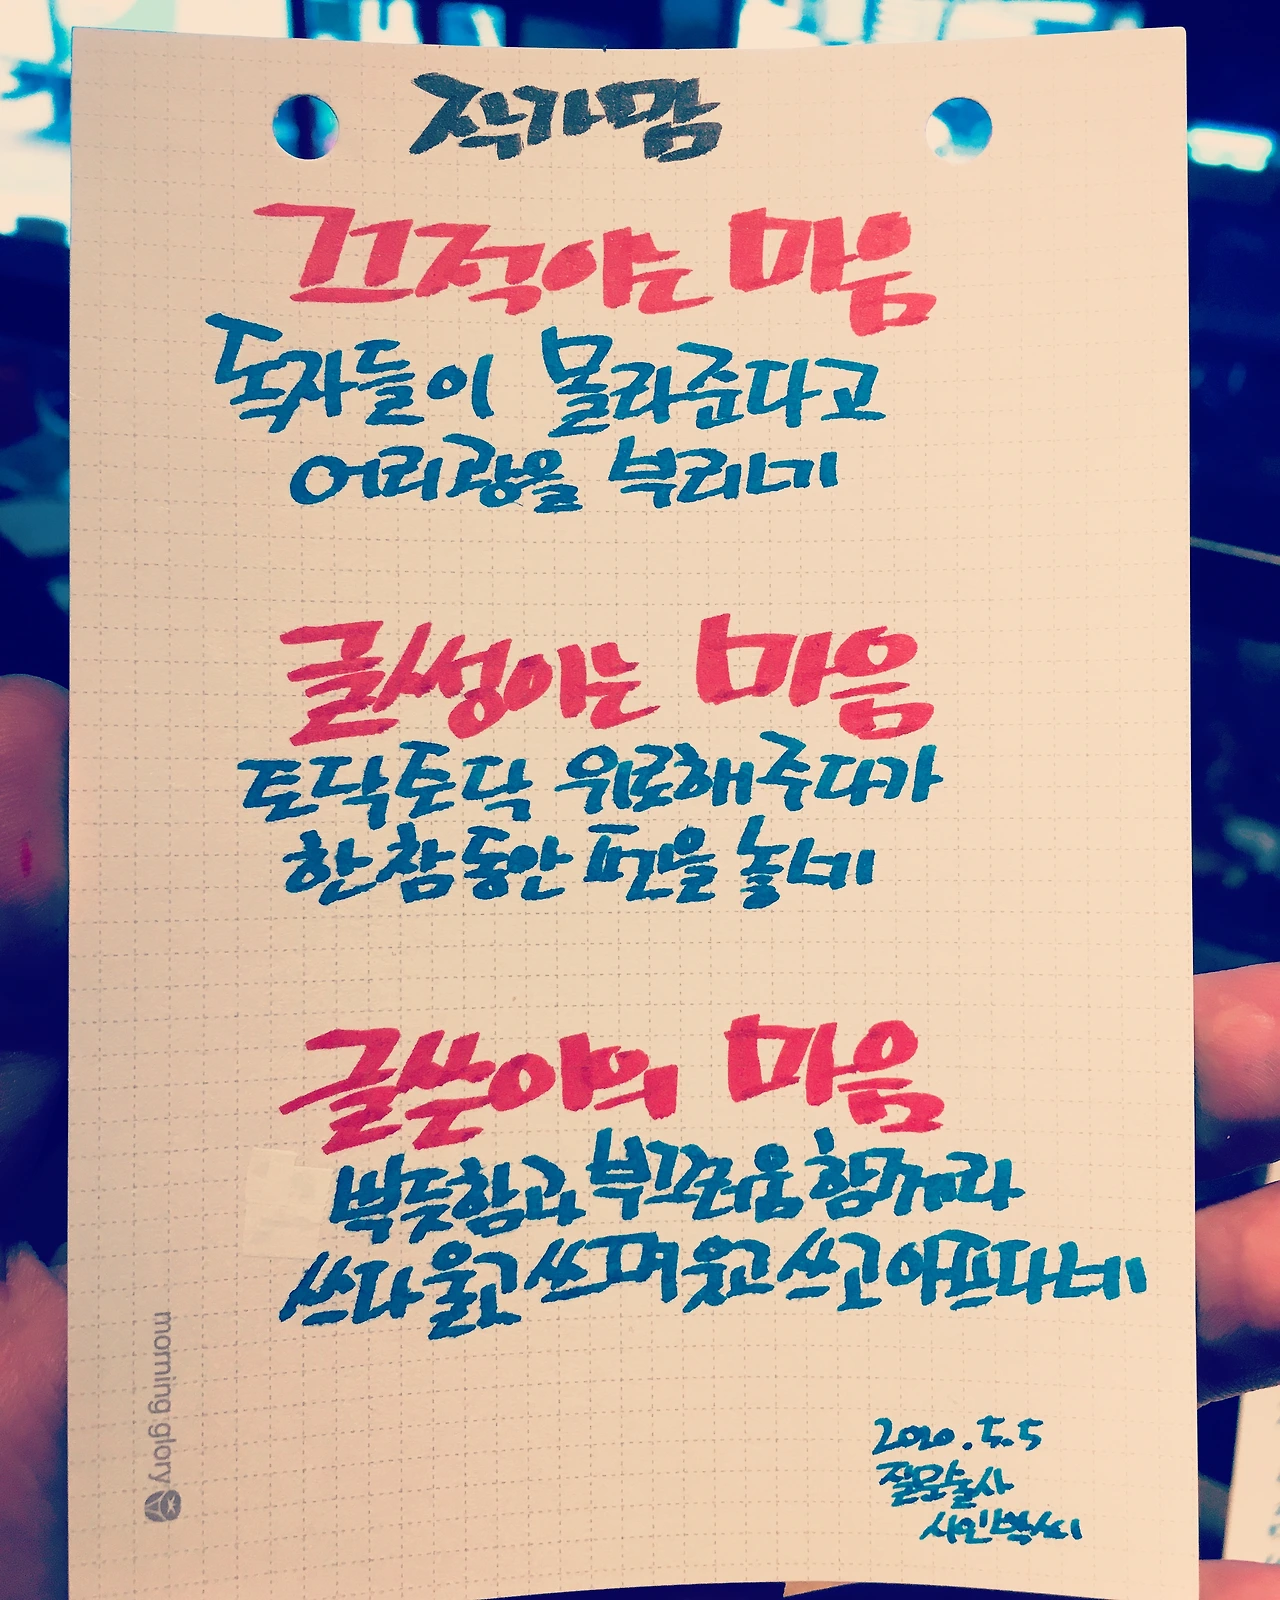 작가맘
끄적이는 마음
독자들이 몰라준다고
어리광을 부리네
글썽이는 마음
토닥토닥 위로해주다가
한참동안 펜을 놓네
글쓴이의 마음
뿌듯함과 부끄러움 함께라
쓰다 울고 쓰며 웃고 쓰고 아프다네
2020.5.5
질문술사
시인박씨
morning glory